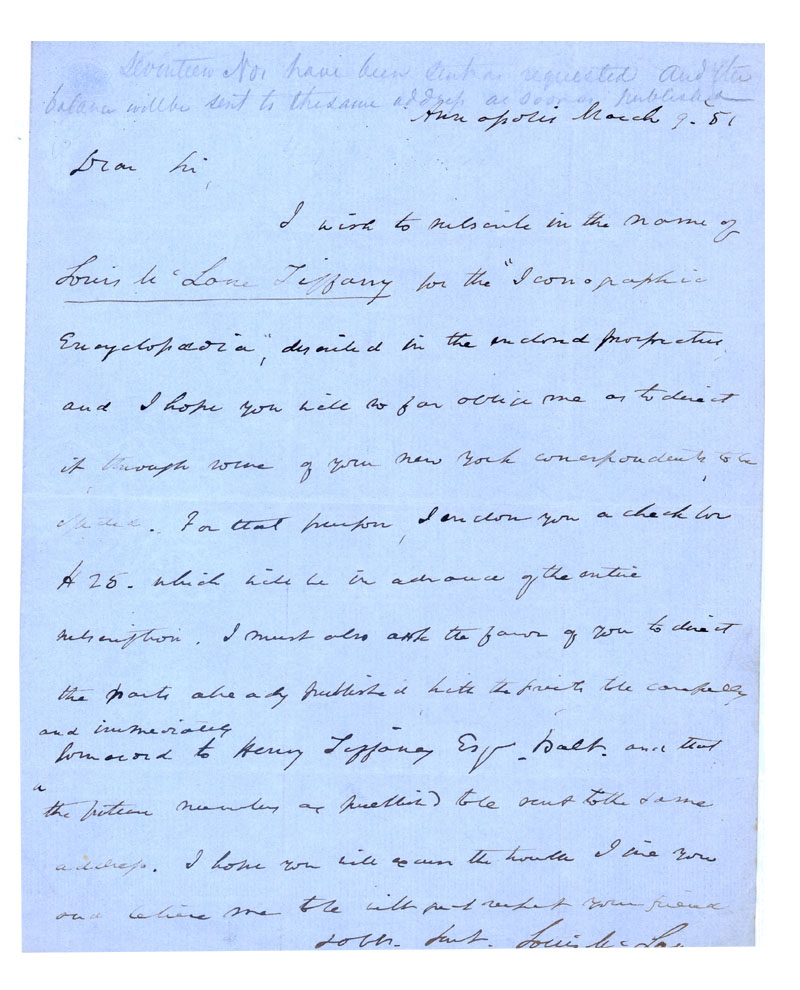 Seventeen Nos have been sent as requested and the
balance will be sent to the same address as soon as published
Annapolis March 9. 51
Dear Sir,
I wish to subscribe in the name of
Louis McLane Tiffany for the "Iconographic
Encyclopædia", described in the enclosed prospectus,
and I hope you will so far oblige me as to direct
it through some of your New York correspondents, to be
For that purpose, I enclose you a check for
$25. which will be in advance of the entire
subscription. I must also ask the favor of you to direct
the parts already published with the prints to be carefully
and immediately
forward to Henry Tiffany Esqr. Balt. and that
the future numbers as publishd to be sent to the same
address. I hope you will excuse the trouble I give you
and believe me to be with great respect your friend
Louis McLa